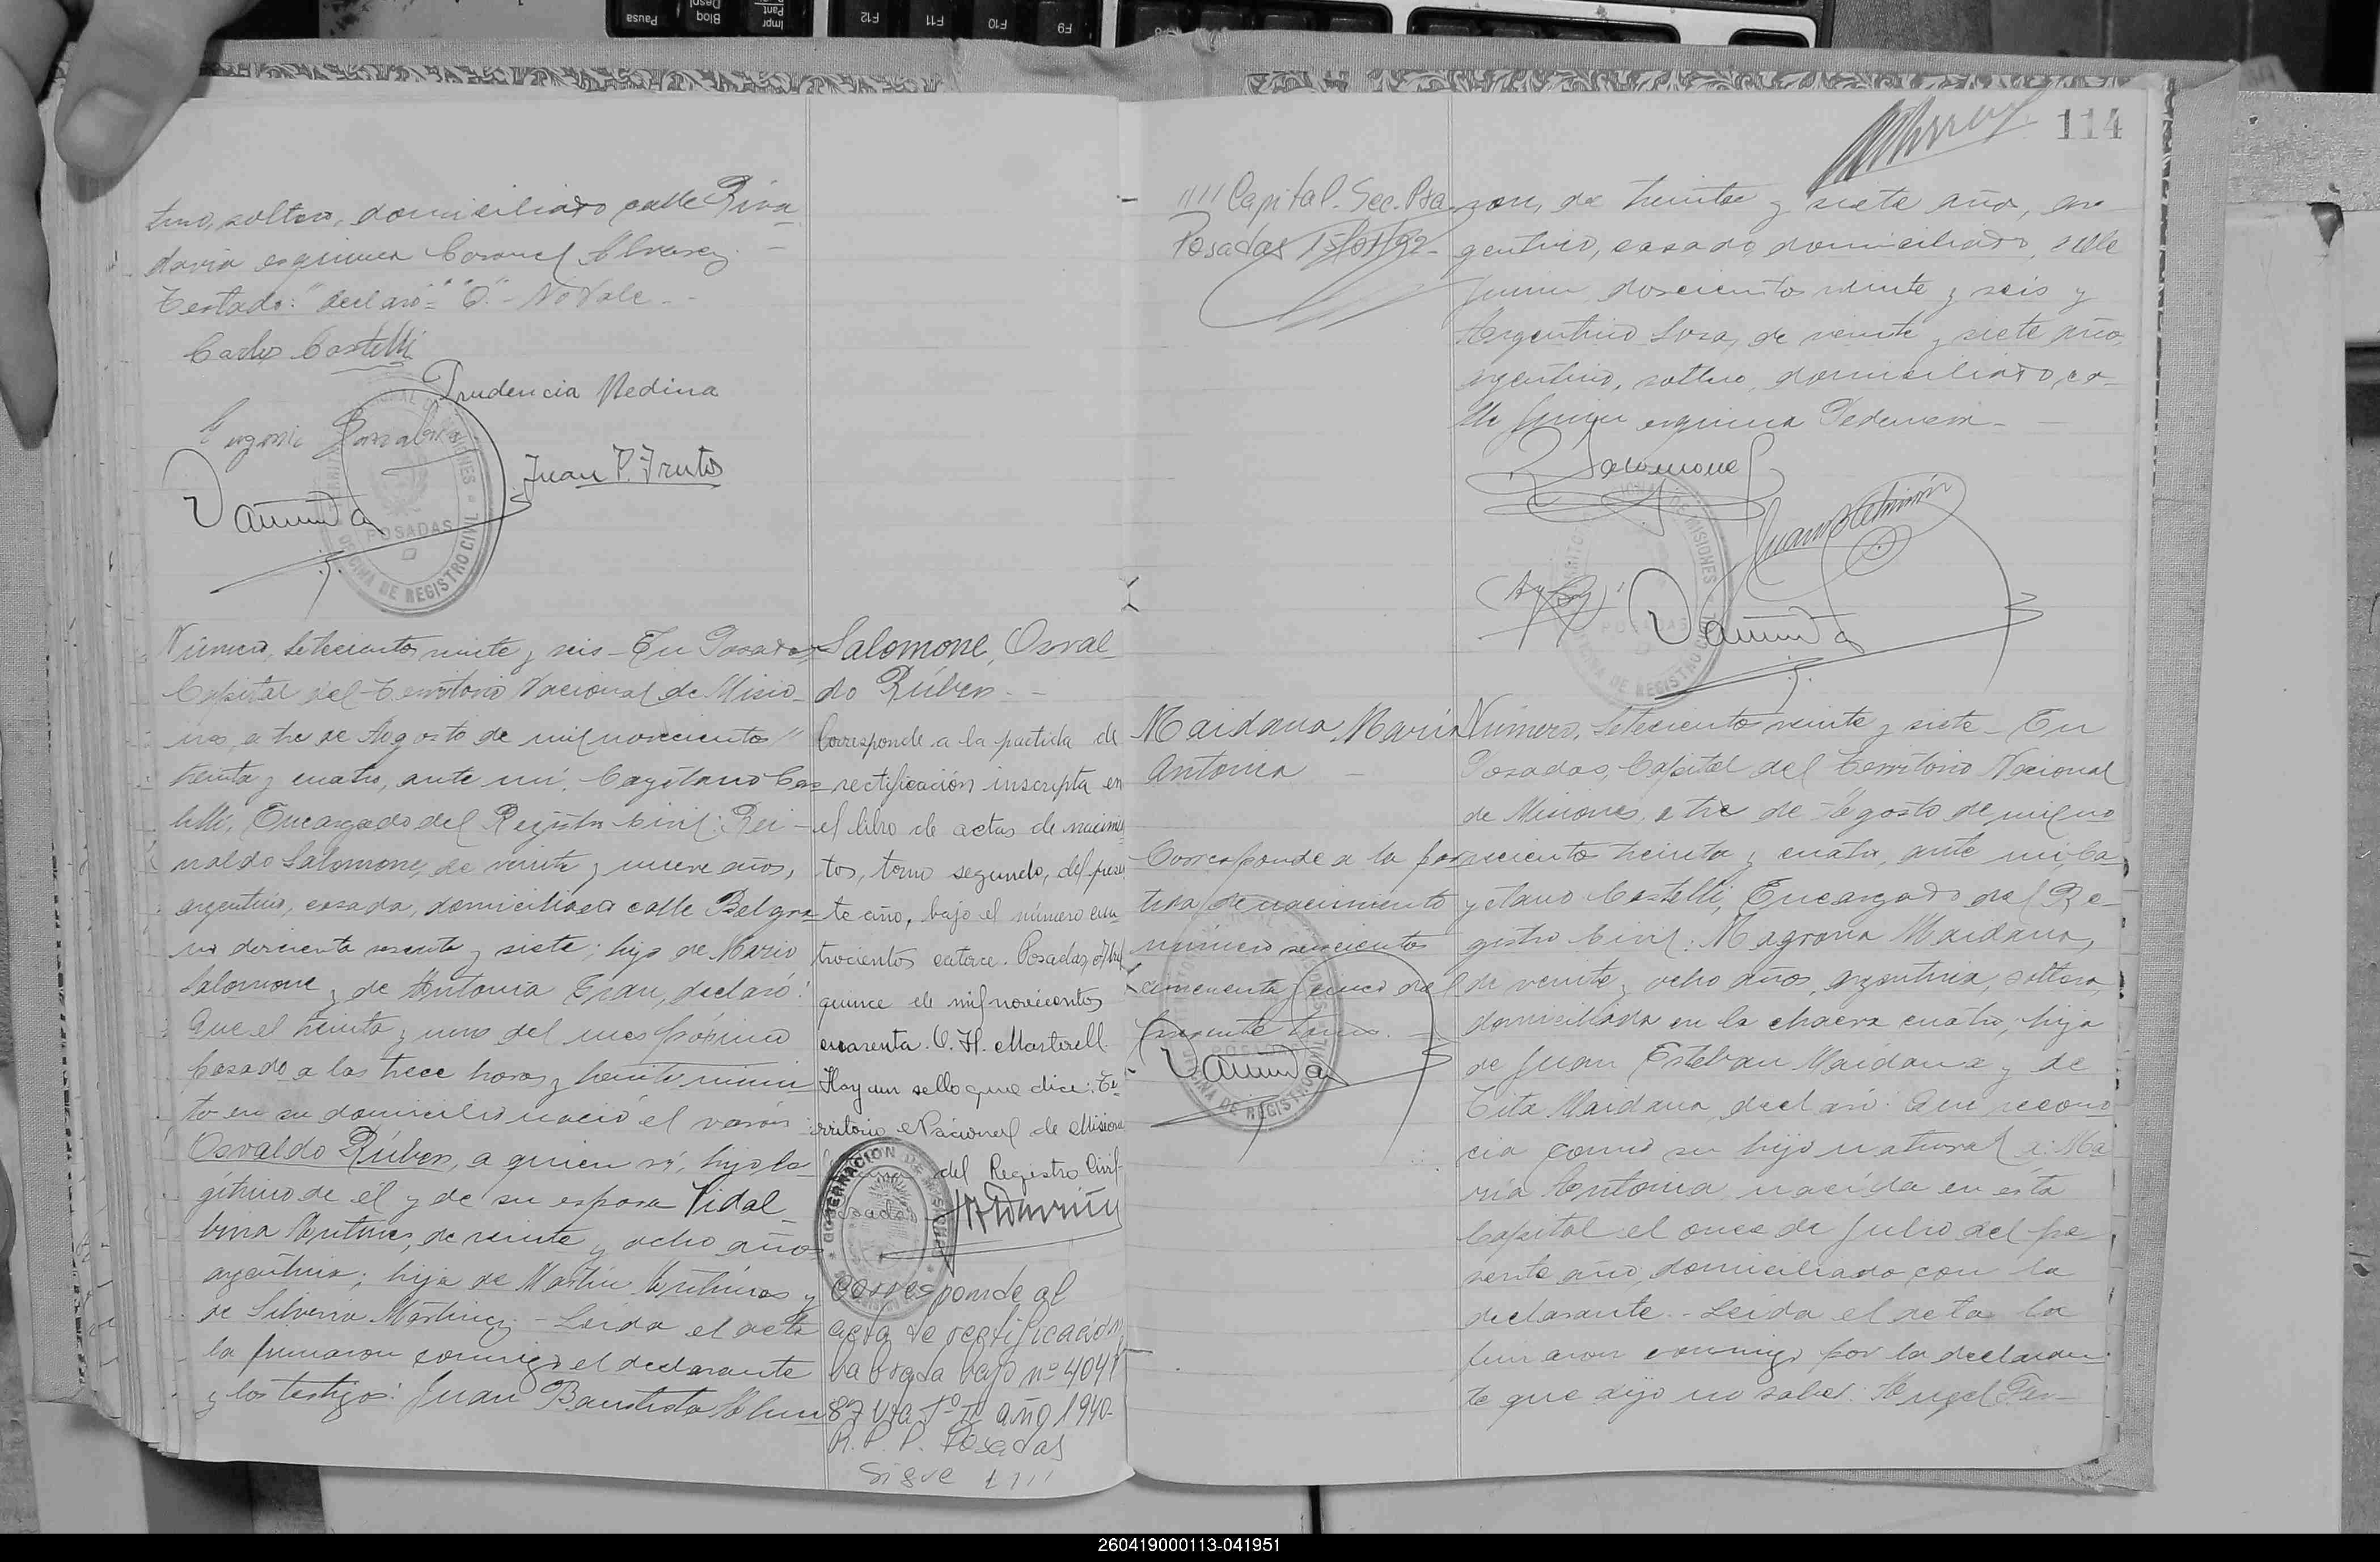 tino, soltero, domiciliado calle Riva
davia esquina Coronel Alvarez.
Testado: "declaró" "O." - No Vale.
Carlos Castelli
Prudencia Medina
Eugenio
Juan P. Frutos
POSADAS
OFICINA DE REGISTRO CIVIL
Número, Setecientos veinte y seis - En Posadas,
Capital del Territorio Nacional de Misio
nes, a tre de Agosto de mil novecientos
treinta y cuatro, ante mi, Cayetano Cas
telli, Encargado del Registro Civil: Rei
naldo Salomone, de veinte y nueve años,
argentino, casado, domiciliado calle Belgra
no doscientos sesenta y siete; hijo de Mario
Salomone y de Antonia Gran, declaró:
Que el treinta y uno del mes próximo
pasado a las trece horas y treinta minu
to en su domicilio nació el varón
Osvaldo Rúben, a quien vi, hijo le
gítimo de él y de su esposa Vidal
bina Antunes, de veinte y ocho años
argentina; hija de Martín Antunes y
de Silveria Martinez - Leida el acta
la firmaron conmigo el declarante
y los testigos: Juan Bautista Almi
Salomone, Osval
do Rúben.
Corresponde a la partida de
rectificación inscripta en
el libro de actas de nacimien
tos, tomo segundo, del presen
te año, bajo el número cua
trocientos catorce. Posadas, Abril
quince de mil novecientos
cuarenta. C. H. Masterell.
Hay un sello que dice: Te
rritorio Nacional de Misiones
del Registro Civil
GOBERNACION DE MISIONES
Corresponde al
acta de rectificación
labrada bajo nº 404 Fº
87 Vta Tº II año 1940.
R.P.P. Posadas
Sigue ////
114
//// Capital. Sec. Pda
Posadas 15/01/92-
ron, de treinta y siete año, ar
gentino, casado, domiciliado, calle
Junin doscientos veinte y seis y
Argentino Sosa, de veinte y siete año,
argentino, soltero, domiciliado, ca
lle Junin esquina Pedernera -
R Salomone
MISIONES
OFICINA DE REGISTRO CIVIL
Maidana Maria
Antonia
Corresponde a la par
tida de nacimiento
número seiscientos
cincuenta y cinco del
presente tomo.
OFICINA DE REGISTRO CIVIL
Número, Setecientos veinte y siete - En
Posadas, Capital del Territorio Nacional
de Misiones, a tre de Agosto de mil no
vecientos treinta y cuatro, ante mi, Ca
yetano Castelli, Encargado del Re
gistro Civil: Magrana Maidana,
de veinte y ocho años, argentina, soltera,
domiciliada en la chacra cuatro, hija
de Juan Esteban Maidana y de
Tita Maidana, declaró: Que recono
cia como su hijo natural a: Ma
ría Antonia nacida en esta
Capital el once de Julio del pre
sente año, domiciliado con la
declarante. - Leída el acta la
firmaron conmigo por la declaran
te que dijo no saber: Angel Fer
260419000113-041951